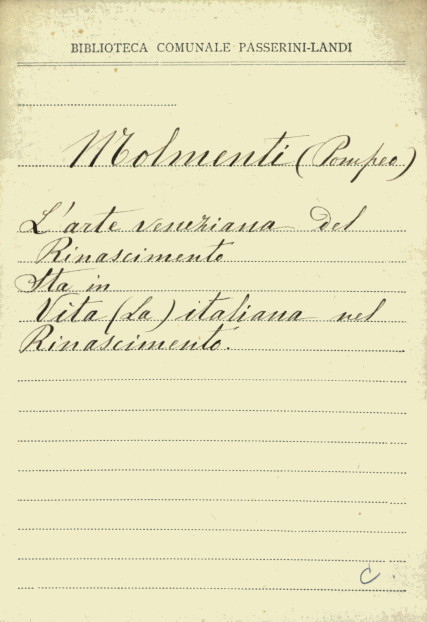 BIBLIOTECA COMUNALE PASSERINI-LANDI
Molmenti (Pompeo)
L'arte veneziana del
Rinascimento
Sta in
Vita (La) italiana nel
Rinascimento.
C.